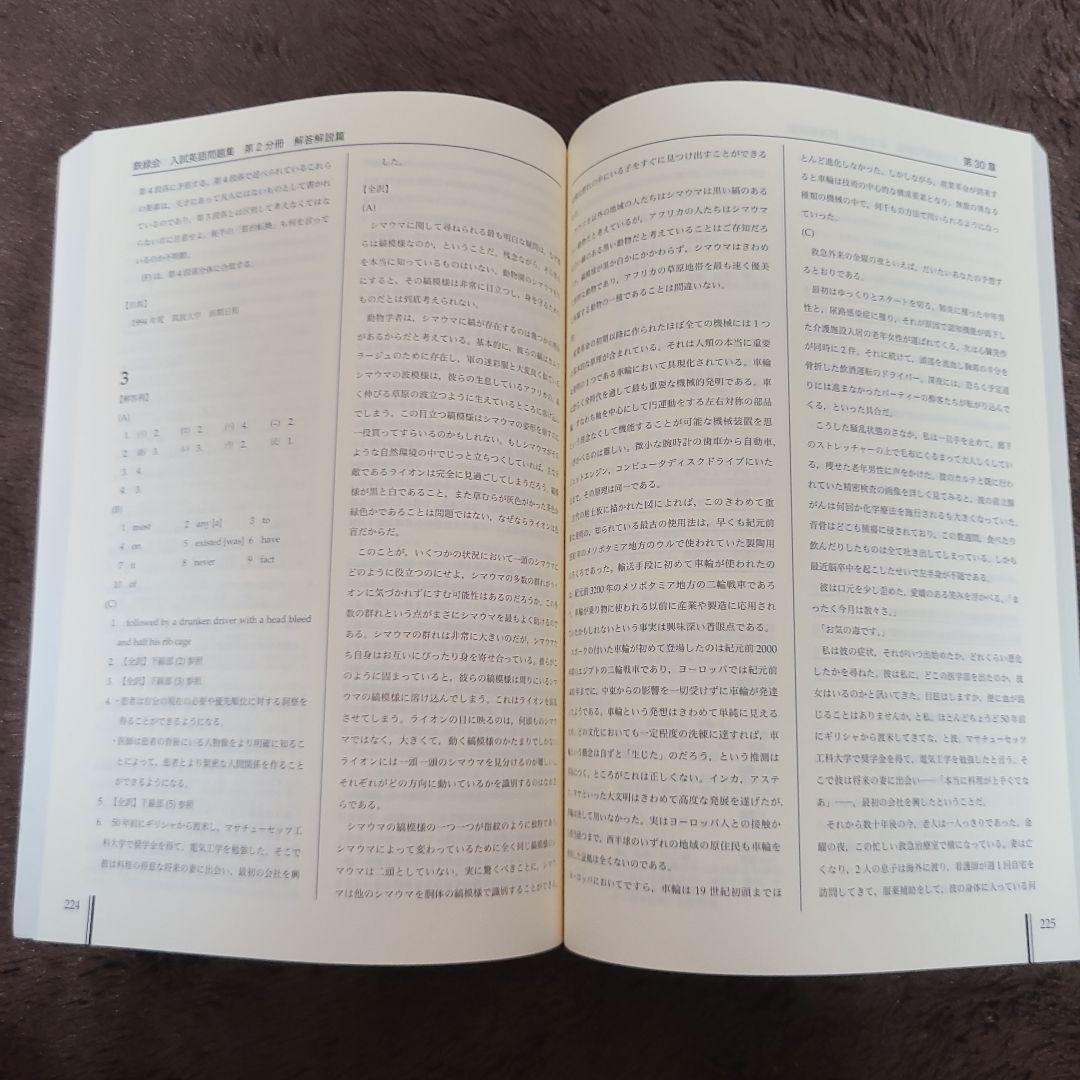 鉄緑会 入試英語問題集 第2分冊 解答解説篇
第4段落に矛盾する。第4段落で述べられているこれら
の要素は、天才にあって凡人にはないものとして書かれ
ているのであり、第3段落とは区別して考えなくてはな
らない点に注意せよ。後半の
も何を言って
いるのか不明瞭。
(F)は、第4段落全体に合致する。
【出典】
1994年度 筑波大学 前期日程
3
【解答例】
(A)
3. 4.
4. 3.
(B)
1 most 2 any [a] 3 to
4 on 5 existed [was] 6 have
7 it 8 never 9 fact
10 of
(C)
1. followed by a drunken driver with a head bleed
and half his rib cage
2. 【全訳】下線部(2)参照
3. 【全訳】下線部(3)参照
4. ・患者は自分の現在の必要や優先順位に対する洞察を
得ることができるようになる。
・医師は患者の背後にいる人物像をより明確に知るこ
とによって、患者とより緊密な人間関係を作ること
ができるようになる。
5. 【全訳】下線部(5)参照
6. 50年前にギリシャから渡米し、マサチューセッツ工
科大学で奨学金を得て、電気工学を勉強した。そこで
彼は料理の得意な将来の妻に出会い、最初の会社を興
224
した。
【全訳】
(A)
シマウマに関して尋ねられる最も明白な疑問は、なぜ彼
らは縞模様なのか、ということだ。残念ながら、
を本当に知っているものはいない。動物園のシマウマを
にすると、その縞模様は非常に目立つし、身を守るための
ものだとは到底考えられない。
動物学者は、シマウマに縞が存在するのは
があるからだと考えている。基本的に、彼らの縞はカムフ
ラージュのために存在し、軍の迷彩服と大変良く似ている。
シマウマの波模様は、彼らの生息しているアフリカの、
く伸びる草原の波立つように生えているところに溶け込ん
でしまう。この目立つ縞模様はシマウマの姿形を
一役買ってすらいるのかもしれない。もしシマウマがその
ような自然環境の中でじっと立ちつくしていれば、
敵であるライオンは完全に見過ごしてしまうだろう。縞模
様が黒と白であること、また草むらが灰色がかった茶色か
緑色かであることは問題ではない、なぜならライオンは色
盲だからだ。
このことが、いくつかの状況において一頭のシマウマに
どのように役立つのにせよ、シマウマの多数の群れがライ
オンに気づかれずにすむ可能性はあるのだろうか。この多
数の群れという点がまさにシマウマを最もよく助けるので
ある。シマウマの群れは非常に大きいのだが、シマウマた
ち自身はお互いにぴったり身を寄せ合っている。彼らがこ
のように固まっていると、彼らの縞模様は周りにいるシマ
ウマの縞模様に溶け込んでしまう。これはライオンを混乱
させてしまう。ライオンの目に映るのは、何頭ものシマウ
マではなく、大きくて、動く縞模様のかたまりでしかない。
ライオンには一頭一頭のシマウマを見分けるのが難しい。
それぞれがどの方向に動いているかを識別するのはなおさ
らである。
シマウマの縞模様の一つ一つが指紋のように独特であり、
シマウマによって変わっているために全く同じ縞模様の
シマウマは二頭としていない。実に驚くべきことに、シマウ
マは他のシマウマを胴体の縞模様で識別することができ、
第30章
の中にいる子をすぐに見つけ出すことができる
以外の地域の人たちはシマウマは黒い縞のある
動物だと考えているが、アフリカの人たちはシマウマ
い縞のある黒い動物だと考えていることはご存知だろ
縞模様が黒か白かにかかわらず、シマウマはきわめ
な動物であり、アフリカの草原地帯を最も速く優美
する動物の一種であることは間違いない。
革命の初期以降に作られたほぼ全ての機械には1つ
基本的な原理が含まれている。それは人類の本当に重要
発明の1つである車輪において具現化されている。車輪
らく全時代を通して最も重要な機械的発明である。車
すなわち軸を中心にして円運動をする左右対称の部品
念なくして機能することが可能な機械装置を思
べるのは難しい。微小な腕時計の歯車から自動車、
ェットエンジン、コンピュータディスクドライブにいた
まで、その原理は同一である。
の粘土板に描かれた図によれば、このきわめて重
発明の、知られている最古の使用法は、早くも紀元前
年のメソポタミア地方のウルで使われていた製陶用
ろであった。輸送手段に初めて車輪が使われたの
紀元前3200年のメソポタミア地方の二輪戦車であろ
車輪が乗り物に使われる以前に産業や製造に応用され
たかもしれないという事実は興味深い着眼点である。
スポークの付いた車輪が初めて登場したのは紀元前2000
のエジプトの二輪戦車であり、ヨーロッパでは紀元前
年までに、中東からの影響を一切受けずに車輪が発達
ようである。車輪という発想はきわめて単純に見える
どの文化においても一定程度の洗練に達すれば、車
いう概念は自ずと「生じた」のだろう、という推測は
つく、ところがこれは正しくない。インカ、アステ
マヤといった大文明はきわめて高度な発展を遂げたが、
決して用いなかった。実はヨーロッパ人との接触か
つまで、西半球のいずれの地域の原住民も車輪を
した証拠は全くないのである。
ヨーロッパにおいてですら、車輪は19世紀初頭までほ
とんど進化しなかった。しかしながら、産業革命が到来す
ると車輪は技術の中心的な構成要素となり、無数の異なる
種類の機械の中で、何千もの方法で用いられるようになっ
ていった。
(C)
救急外来の金曜の夜といえば、だいたいあなたの予想す
るとおりである。
最初はゆっくりとスタートを切る。肺炎に罹った中年男
性と、尿路感染症に罹り、それが原因で認知機能が低下し
た介護施設入居の老年女性が運ばれてくる。次は心臓発作
が同時に2件。それに続けて、頭部を流血し胸郭の半分を
骨折した飲酒運転のドライバー。深夜には、恐らく予定通
りには進まなかったパーティーの酔客たちが転がり込んで
くる、といった具合だ。
こうした騒乱状態のさなか、私は一息手を止めて、廊下
のストレッチャーの上で毛布にくるまって大人しくしてい
る、痩せた老年男性に声をかけた。彼のカルテと既に行わ
れていた精密検査の画像を詳しく見てみると、彼の前立腺
がんは何回か化学療法を施行されるも大きくなっていた。
背骨はどこも腫瘍に侵されており、この数週間、食べたり
飲んだりしたものは全て吐き出してしまっている。しかも
最近脳卒中を起こしたせいで左半身が不随である。
彼は口元を少し歪めた、愛嬌のある笑みを浮かべる。「ま
ったく今月は散々さ。」
「お気の毒です。」
私は彼の症状、それがいつ出始めたか、どれくらい悪化
したかを尋ねた。彼は私に、どこの医学部を出たのか、彼
女はいるのかと訊いてきた。目眩はしますか、便に血が混
じることはありませんか、と私。ほとんどちょうど50年前
にギリシャから渡米してきてな、と彼。マサチューセッツ
工科大学で奨学金を得て、電気工学を勉強したと言う。そ
こで彼は将来の妻に出会い――「本当に料理が上手くてな
あ」――、最初の会社を興したということだ。
それから数十年後の今、老人は一人っきりであった。金
曜の夜、この忙しい救急治療室で横になっている。妻は亡
くなり、2人の息子は海外に渡り、看護師が週1回自宅を
訪問してきて、服薬補助をして、彼の身体に入っている何
225